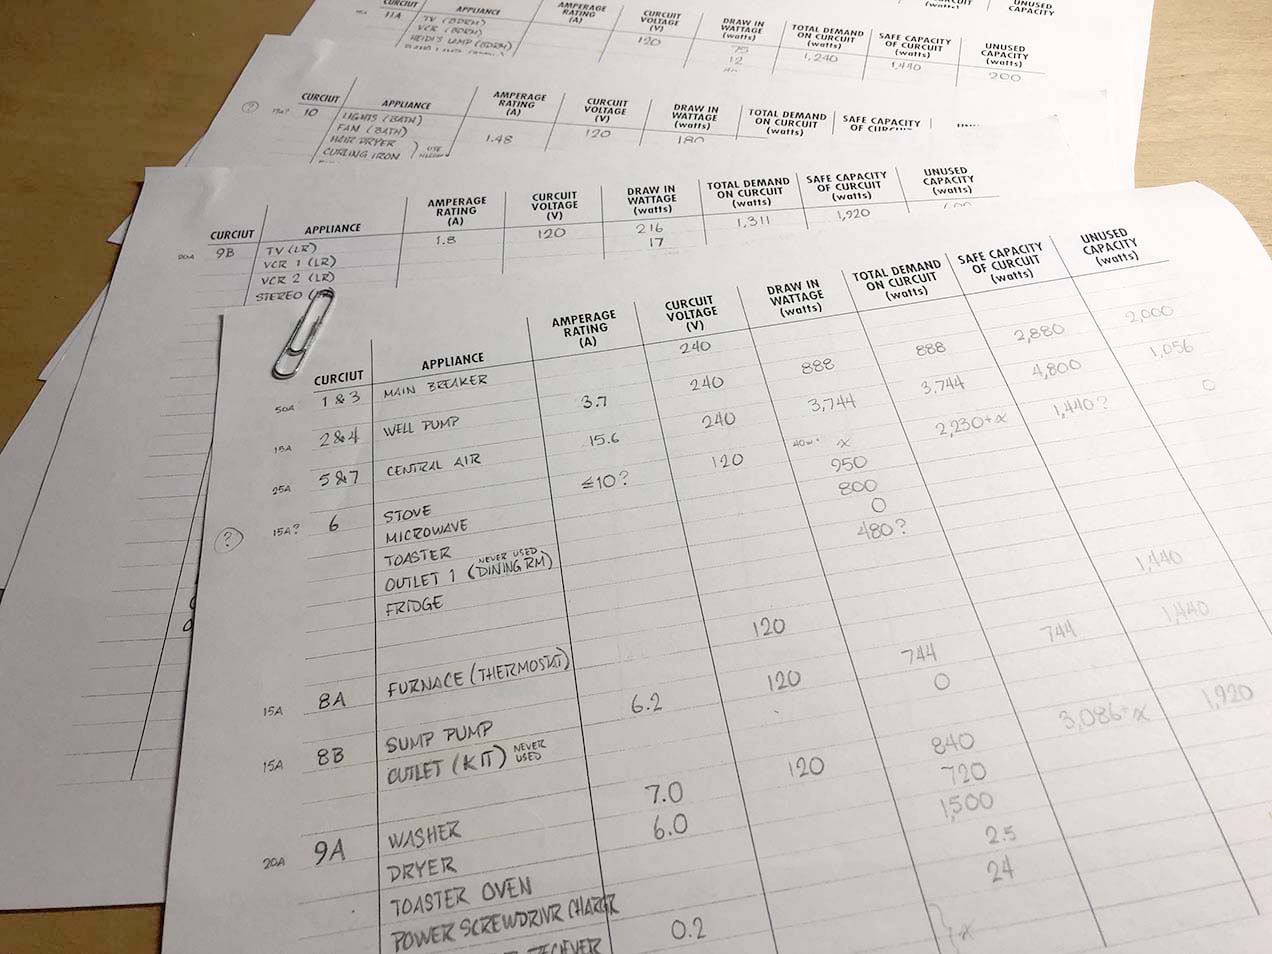 UNUSED
CAPACITY
CURCIUT
(watts)
CURCIUT APPLIANCE AMPERAGE RATING (A) CURCUIT VOLTAGE (V) DRAW IN WATTAGE (watts) TOTAL DEMAND ON CURCUIT (watts) SAFE CAPACITY OF CURCUIT (watts) UNUSED CAPACITY (watts)
11A TV (BDRM) 120 75 1,240 1,440 200
VCR (BDRM) 12
HEIDI'S LAMP (BDRM)
CURCIUT APPLIANCE AMPERAGE RATING (A) CURCUIT VOLTAGE (V) DRAW IN WATTAGE (watts) TOTAL DEMAND ON CURCUIT (watts) SAFE CAPACITY OF CURCUIT
? 15A? 10 LIGHTS (BATH) 1.48 120 180
FAN (BATH)
HAIR DRYER USE
CURLING IRON
CURCIUT APPLIANCE AMPERAGE RATING (A) CURCUIT VOLTAGE (V) DRAW IN WATTAGE (watts) TOTAL DEMAND ON CURCUIT (watts) SAFE CAPACITY OF CURCUIT (watts) UNUSED CAPACITY (watts)
20A 9B TV (LR) 1.8 120 216 1,311 1,920
VCR 1 (LR) 17
VCR 2 (LR)
STEREO
CURCIUT APPLIANCE AMPERAGE RATING (A) CURCUIT VOLTAGE (V) DRAW IN WATTAGE (watts) TOTAL DEMAND ON CURCUIT (watts) SAFE CAPACITY OF CURCUIT (watts) UNUSED CAPACITY (watts)
50A 1 & 3 MAIN BREAKER 240
15A 2 & 4 WELL PUMP 3.7 240 888 888 2,880 2,000
25A 5 & 7 CENTRAL AIR 15.6 240 3,744 3,744 4,800 1,056
? 15A? 6 STOVE ≤10? 120 40w+ x 2,230+x 1,440? 0
MICROWAVE 950
TOASTER 800
OUTLET 1 (DINING RM) NEVER USED 0
FRIDGE 480?
15A 8A FURNACE (THERMOSTAT) 120 1,440
15A 8B SUMP PUMP 6.2 120 744 744 1,440
OUTLET (KIT) NEVER USED 0
20A 9A WASHER 7.0 120 840 3,086+x 1,920
DRYER 6.0 720
TOASTER OVEN 1,500
POWER SCREWDRIVR CHARGR 2.5
RECIEVER 0.2 24
x